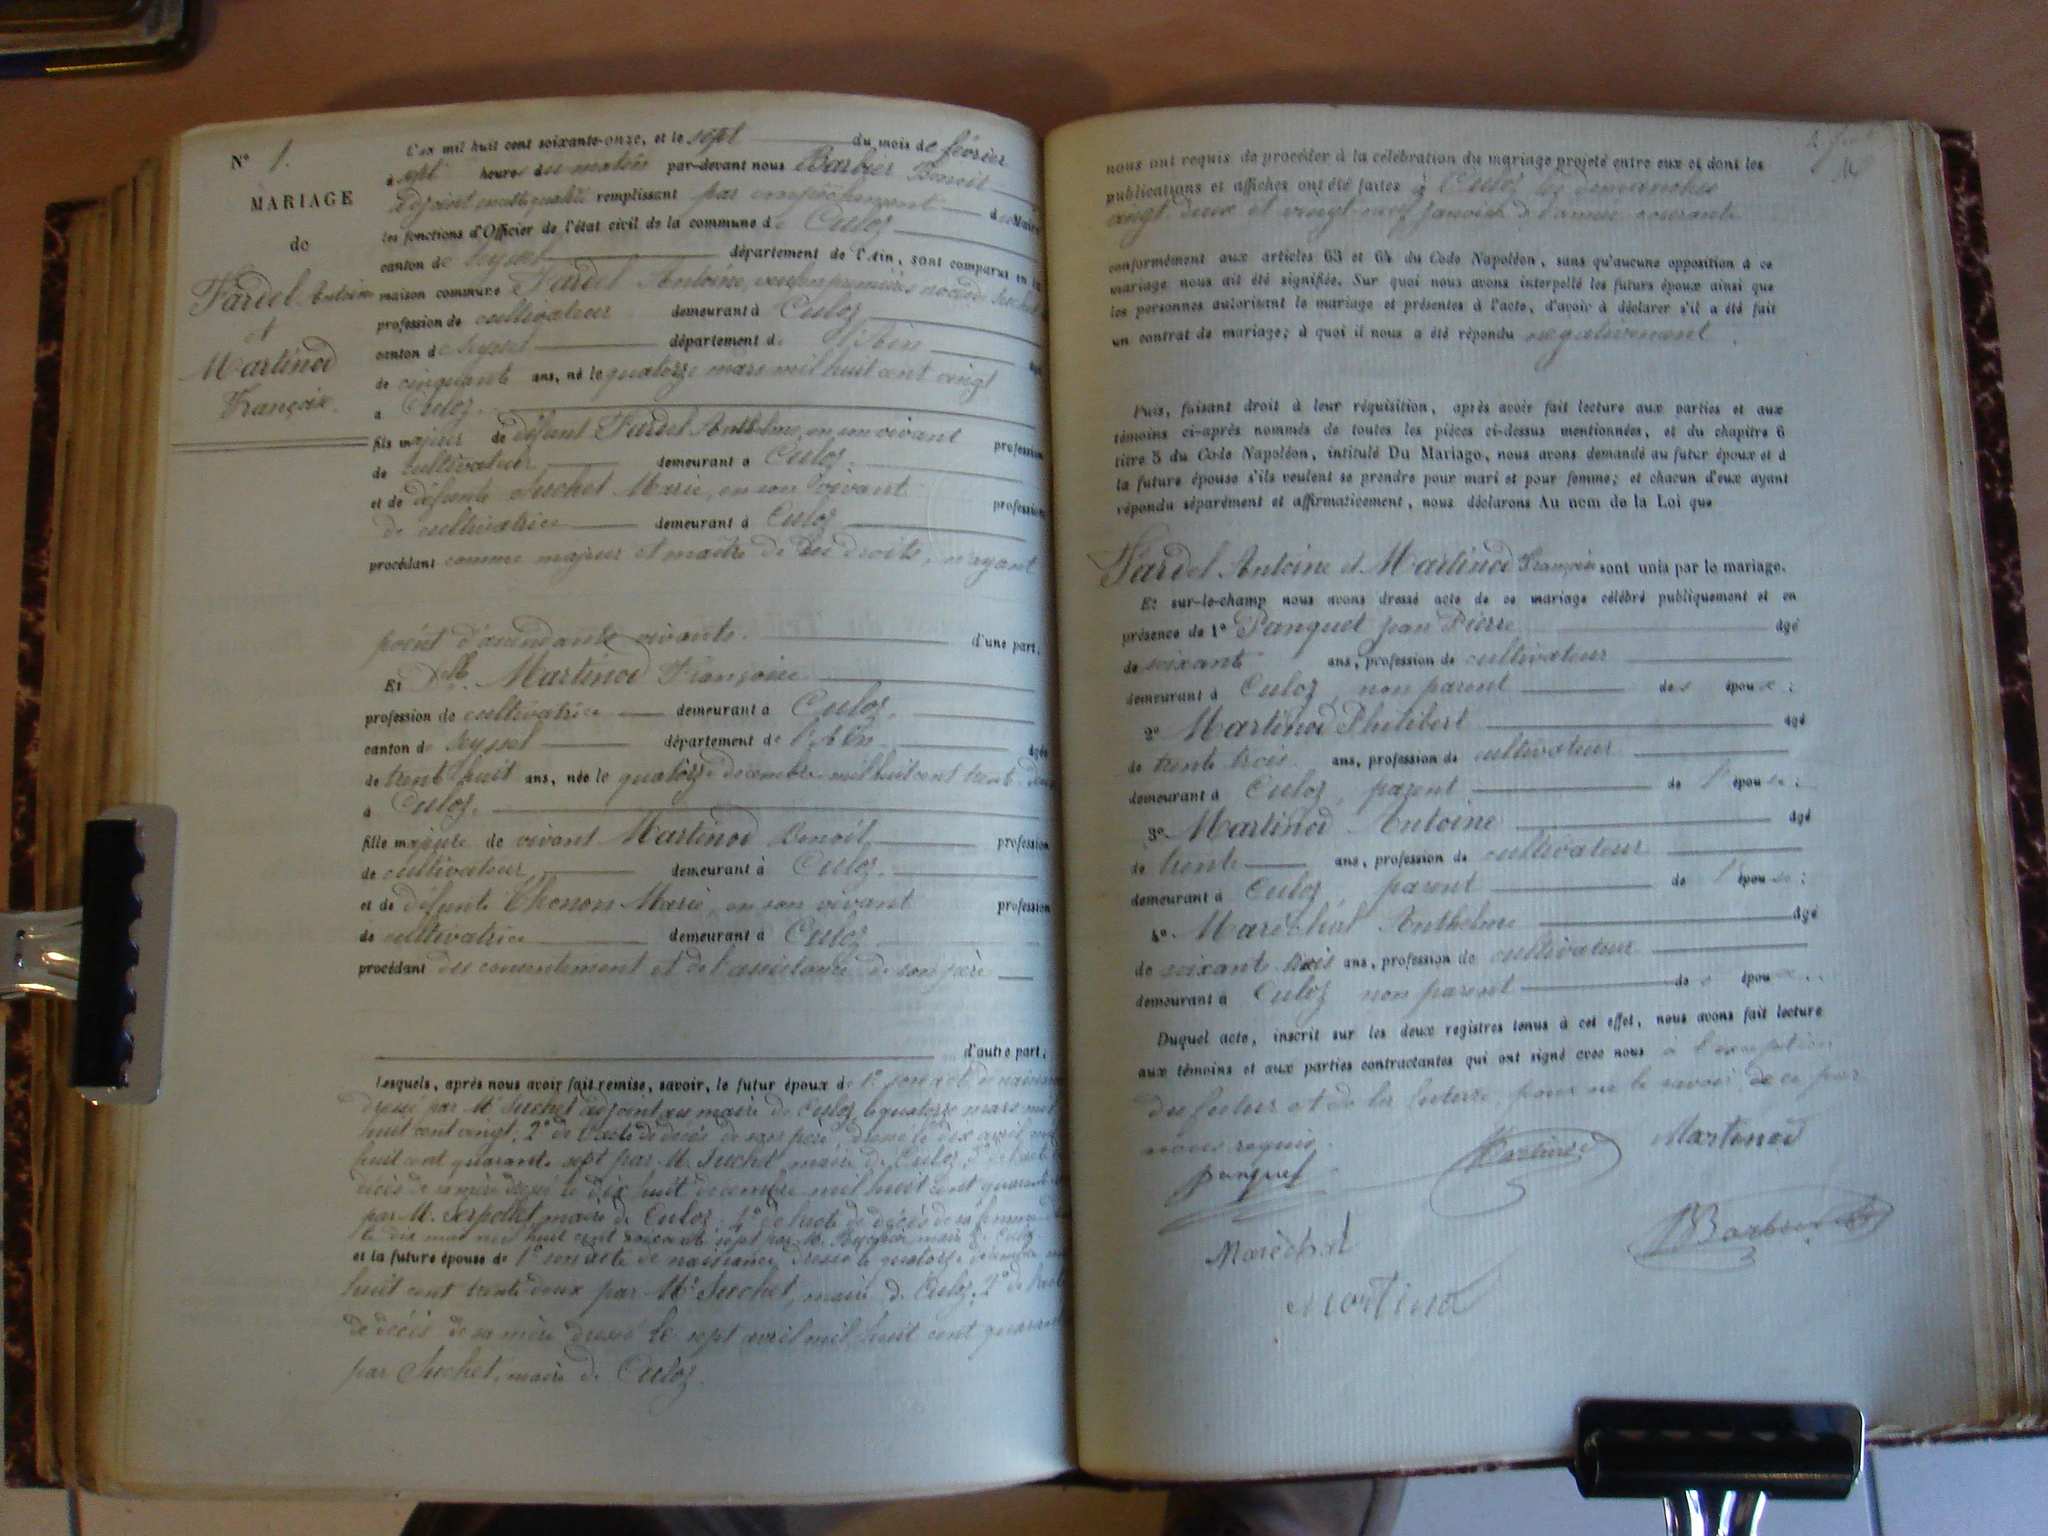 N° 1.
MARIAGE
de
Fardel Antoine
et
Martinod
Françoise.
L'an mil huit cent soixante-onze, et le sept du mois de février
à sept heures du matin par-devant nous Barbier Benoit
adjoint en cette qualité remplissant par empêchement du Maire
les fonctions d'Officier de l'état civil de la commune de Culoz
canton de Seyssel département de l'Ain, sont comparus en la
maison commune Fardel Antoine, veuf en premières noces de
profession de cultivateur demeurant à Culoz
canton de Seyssel département de l'Ain âgé
de cinquante ans, né le quatorze mars mil huit cent vingt
à Culoz.
fils majeur de défunt Fardel Anthelme, en son vivant profession
de cultivateur demeurant à Culoz.
et de défunte Suchet Marie, en son vivant profession
de cultivatrice demeurant à Culoz
procédant comme majeur et maître de ses droits, n'ayant
point d'ascendants vivants. d'une part.
Et Dlle Martinod Françoise
profession de cultivatrice demeurant à Culoz.
canton de Seyssel département de l'Ain âgée
de trente huit ans, née le quatorze décembre mil huit cent trente deux
à Culoz.
fille majeure de vivant Martinod Benoit profession
de cultivateur demeurant à Culoz.
et de défunte Thonon Marie, en son vivant profession
de cultivatrice demeurant à Culoz
procédant du consentement et de l'assistance de son père
d'autre part.
Lesquels, après nous avoir fait remise, savoir, le futur époux de 1° son acte de naissance
dressé par Mr Suchet adjoint au maire de Culoz, le quatorze mars mil
huit cent vingt, 2° de l'acte de décès de son père, dressé le dix avril mil
huit cent quarante sept par M. Suchet, maire de Culoz, 3° de l'acte de
décès de sa mère dressé le dix huit décembre mil huit cent quarante
par M. Serpollet maire de Culoz; 4° de l'acte de décès de sa femme
le dix mai mil huit cent soixante sept par M. maire de Culoz
et la future épouse de 1° son acte de naissance, dressé le quatorze décembre mil
huit cent trente deux par Mr Suchet, maire de Culoz, 2° de l'acte
de décès de sa mère dressé le sept avril mil huit cent quarante
par Suchet, maire de Culoz.
nous ont requis de procéder à la célébration du mariage projeté entre eux et dont les
publications et affiches ont été faites à Culoz les dimanches
vingt deux et vingt neuf janvier de l'année courante
conformément aux articles 63 et 64 du Code Napoléon, sans qu'aucune opposition à ce
mariage nous ait été signifiée. Sur quoi nous avons interpellé les futurs époux ainsi que
les personnes autorisant le mariage et présentes à l'acte, d'avoir à déclarer s'il a été fait
un contrat de mariage; à quoi il nous a été répondu négativement.
Puis, faisant droit à leur réquisition, après avoir fait lecture aux parties et aux
témoins ci-après nommés de toutes les pièces ci-dessus mentionnées, et du chapitre 6
titre 5 du Code Napoléon, intitulé Du Mariage, nous avons demandé au futur époux et à
la future épouse s'ils veulent se prendre pour mari et pour femme; et chacun d'eux ayant
répondu séparément et affirmativement, nous déclarons Au nom de la Loi que
Fardel Antoine et Martinod Françoise sont unis par le mariage.
Et sur-le-champ nous avons dressé acte de ce mariage célébré publiquement et en
présence de 1° Panquet jean Pierre âgé
de soixante ans, profession de cultivateur
demeurant à Culoz, non parent des époux;
2° Martinod Philibert âgé
de trente trois ans, profession de cultivateur
demeurant à Culoz, parent de l'épouse;
3° Martinod Antoine âgé
de trente ans, profession de cultivateur
demeurant à Culoz parent de l'épouse;
4° Maréchal Anthelme âgé
de soixante trois ans, profession de cultivateur
demeurant à Culoz non parent des époux.
Duquel acte, inscrit sur les deux registres tenus à cet effet, nous avons fait lecture
aux témoins et aux parties contractantes qui ont signé avec nous à l'exception
du futur et de la future, pour ne le savoir de ce par
nous requis.
panquet Martinod Martinod
Maréchal Barbier
Martinod